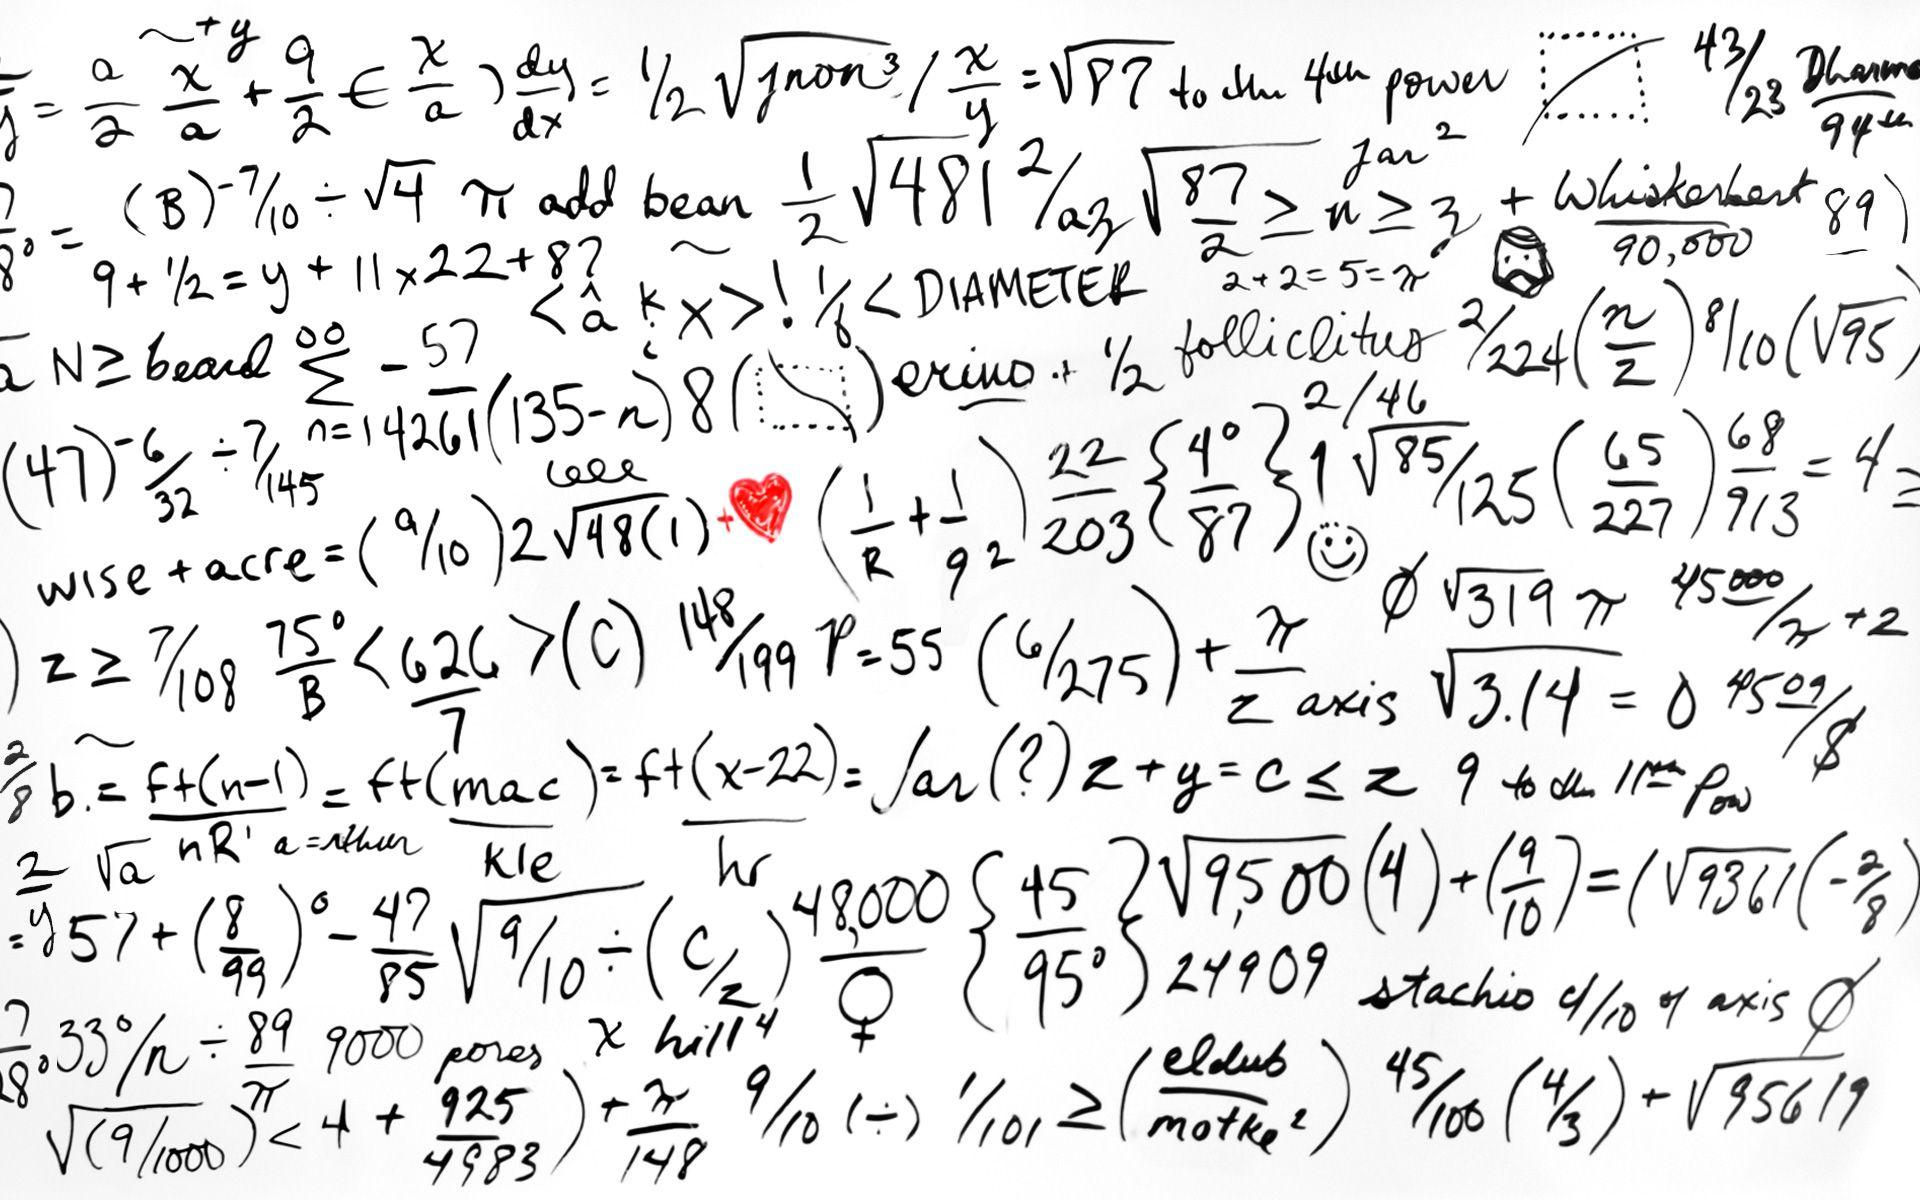 ~+y
y = a/2 x/a + 9/2 ∈ x/a ) dy/dx = 1/2 √jnon³ / x/y = √87 to the 4th power 43/23 Dharma/94th
7/8° = (B)^-7/10 ÷ √4 π add bean 1/2 √481 2/az √87/2 ≥ n ≥ z jar² + Whiskerbert/90,000 89)
9 + 1/2 = y + 11 x 22 + 8? < â k x > ! 1/6 < DIAMETER 2+2=5=π
a N ≥ beard ∞ Σ n=14261 -57 (135-n) 8 ( ) erino + 1/2 folliclitus 2/224 (n/z) 8/10 (√95)
(47)^-6/32 ÷ 7/145 (1/R + 1/9 2) 22/203 {4°/87} 2/46 1 √85/125 (65/227) 68/913 = 4 ≥
wise + acre = (9/10) 2 √48(1) + ♥
Ø √319 π 45000/π + 2
) z ≥ 7/108 75°/B < 626/7 > (C) 148/199 P=55 (6/275) + π/z axis √3.14 = 0 4509/$
2/8 b. = ft(n-1)/nR' = ft(mac)/kle = ft(x-22)/hr = jar(?) z + y = c ≤ z 9 to the 11th pow
2/y √a a=
= 57 + (8/99)° - 47/85 √9/10 ÷ (C/z) 48,000/♀ {45/95°} √9,500 (4) + (9/10) = (√9361 (-2/8)
24909 stachio 4/10 of axis Ø
7/28° 33°/n ÷ 89/π 9000 pores x hill⁴
√(9/1000) < 4 + 925/4983) + π/148 9/10 (÷) 1/101 ≥ (eldub/motke²) 45/100 (4/3) + √95619